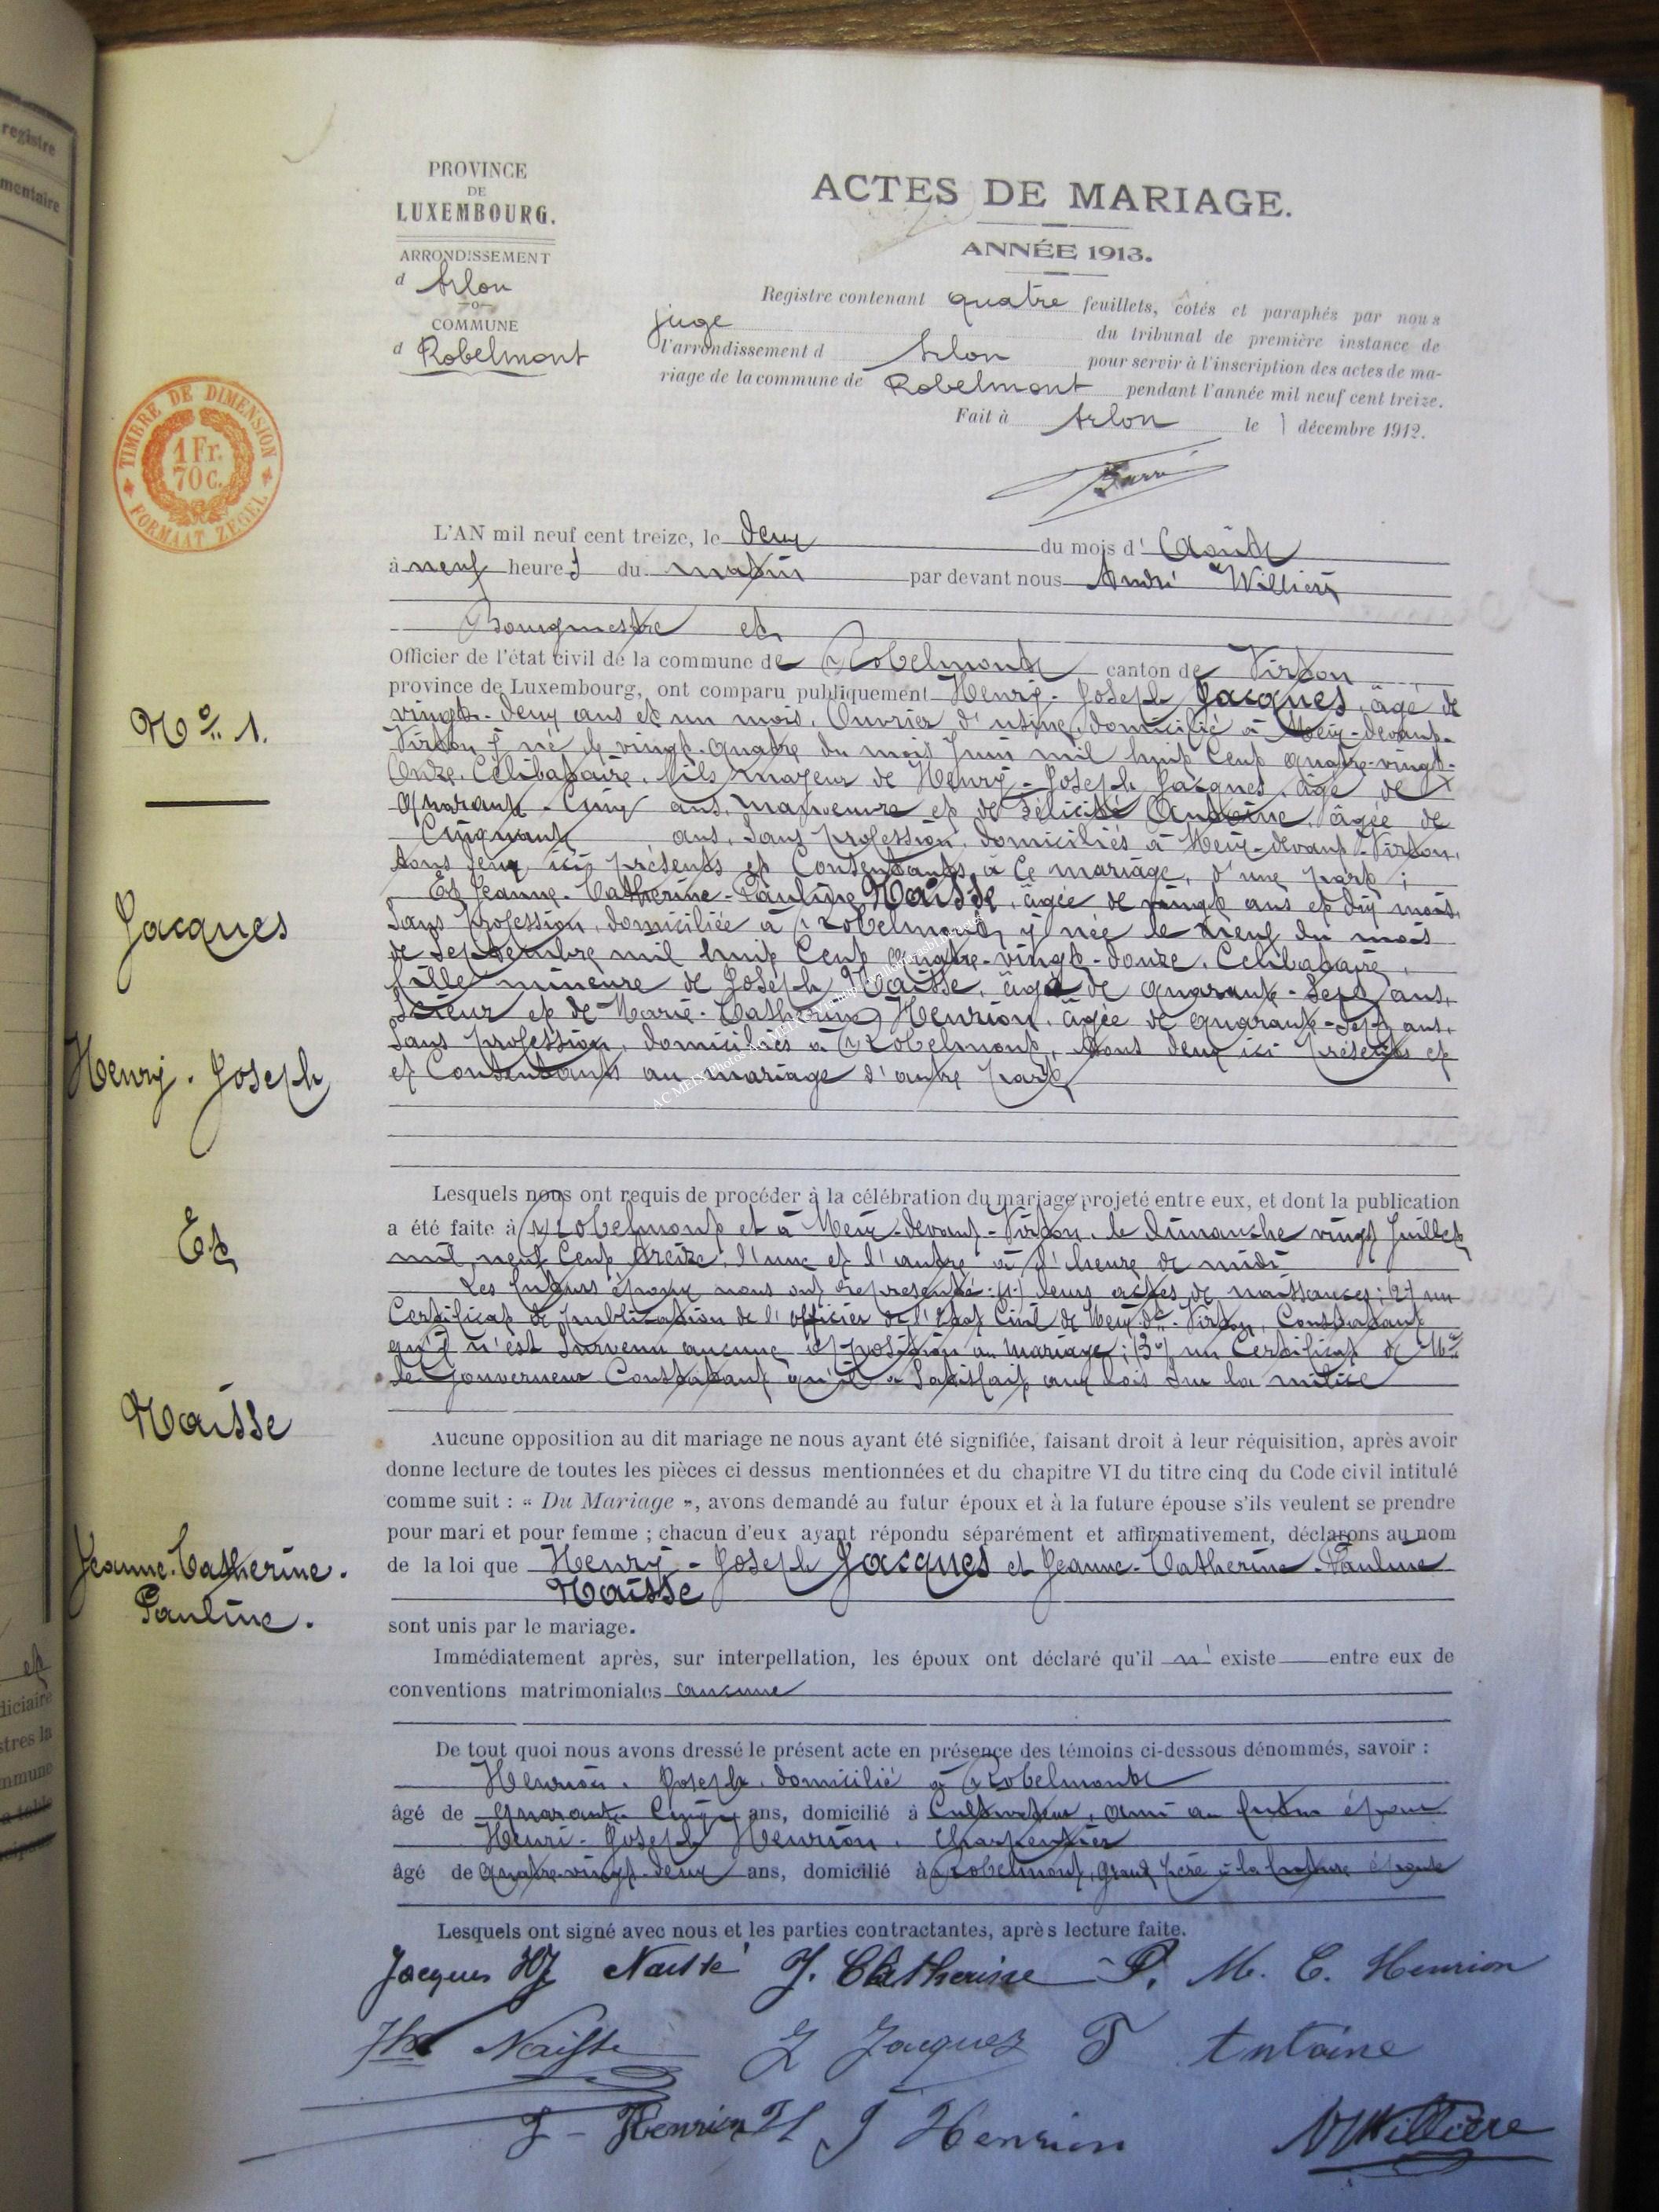 registre
mentaire
PROVINCE
DE
LUXEMBOURG.
ARRONDISSEMENT
d Arlon
COMMUNE
d Robelmont
ACTES DE MARIAGE.
ANNÉE 1913.
Registre contenant quatre feuillets, cotés et paraphés par nous
juge du tribunal de première instance de
l'arrondissement d Arlon pour servir à l'inscription des actes de ma-
riage de la commune de Robelmont pendant l'année mil neuf cent treize.
Fait à Arlon le 1 décembre 1912.
TIMBRE DE DIMENSION
1 Fr.
70 c.
FORMAAT ZEGEL
L'AN mil neuf cent treize, le deux du mois d' Août
à neuf heures du matin par devant nous André Willière
Bourgmestre et
Officier de l'état civil de la commune de Robelmont canton de Virton
province de Luxembourg, ont comparu publiquement Henry-Joseph Jacques, âgé de
vingt-deux ans et un mois, Ouvrier d'usine, domicilié à Meix-devant-
Virton y né le vingt-quatre du mois Juin mil huit Cent quatre-vingt-
Onze, Célibataire, fils majeur de Henry-Joseph Jacques, âgé de
quarante-Cinq ans, manoeuvre et de Félicité Antoine, âgée de
Cinquante ans, Sans profession, domiciliés à Meix-devant-Virton,
tous deux ici présents et Consentants à Ce mariage, d'une part;
Et Jeanne-Catherine-Pauline Naisse, âgée de vingt ans et dix mois,
Sans profession, domiciliée à Robelmont, y née le neuf du mois
de Septembre mil huit Cent quatre-vingt-douze, Célibataire,
fille mineure de Joseph Naisse, âgé de quarante-Sept ans,
Scieur et de Marie-Catherine Henrion, âgée de quarante-Sept ans,
Sans profession, domiciliés à Robelmont, tous deux ici présents et
et Consentants au mariage d'autre part
N° 1.
Jacques
Henry-Joseph
Et
Naisse
Jeanne-Catherine-
Pauline.
Lesquels nous ont requis de procéder à la célébration du mariage projeté entre eux, et dont la publication
a été faite à Robelmont et à Meix-devant-Virton, le dimanche vingt Juillet
mil neuf Cent treize, l'une et l'autre à l'heure de midi
Les futurs époux nous ont représenté: 1°) leurs actes de naissances; 2°) un
Certificat de publication de l'officier de l'Etat Civil de Meix-dt-Virton, Constatant
qu'il n'est Survenu aucune opposition au mariage; 3°) un Certificat de Mr
le Gouverneur Constatant qu'il a Satisfait aux lois Sur la milice
Aucune opposition au dit mariage ne nous ayant été signifiée, faisant droit à leur réquisition, après avoir
donne lecture de toutes les pièces ci dessus mentionnées et du chapitre VI du titre cinq du Code civil intitulé
comme suit : « Du Mariage », avons demandé au futur époux et à la future épouse s'ils veulent se prendre
pour mari et pour femme ; chacun d'eux ayant répondu séparément et affirmativement, déclarons au nom
de la loi que Henry-Joseph Jacques et Jeanne-Catherine-Pauline
Naisse
sont unis par le mariage.
Immédiatement après, sur interpellation, les époux ont déclaré qu'il n' existe entre eux de
conventions matrimoniales aucune
De tout quoi nous avons dressé le présent acte en présence des témoins ci-dessous dénommés, savoir :
Henrion, Joseph, domicilié à Robelmont
âgé de quarante-Cinq ans, domicilié à Cultivateur, ami au futur époux
Henri-Joseph Henrion, Charpentier
âgé de quatre-vingt-deux ans, domicilié à Robelmont, grand père à la future épouse
Lesquels ont signé avec nous et les parties contractantes, après lecture faite.
Jacques HJ Naisse J. Catherine-P. M. C. Henrion
Jh Naisse J Jacques F Antoine
J-Henrion H J Henrion A Willière
et
diciaire
stres la
mmune